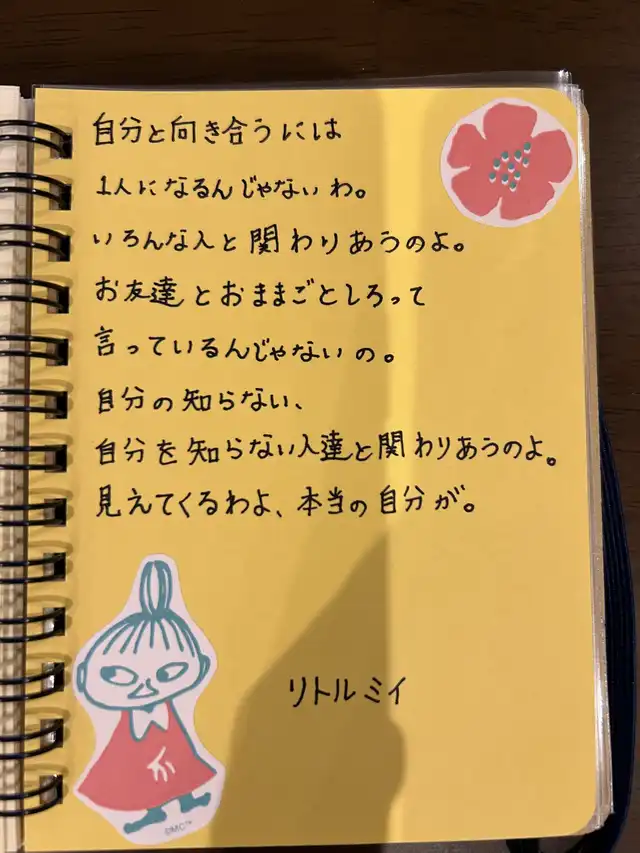 自分と向き合うには
1人になるんじゃないわ。
いろんな人と関わりあうのよ。
お友達とおままごとしろって
言っているんじゃないの。
自分の知らない、
自分を知らない人達と関わりあうのよ。
見えてくるわよ、本当の自分が。
リトルミイ
©MC™